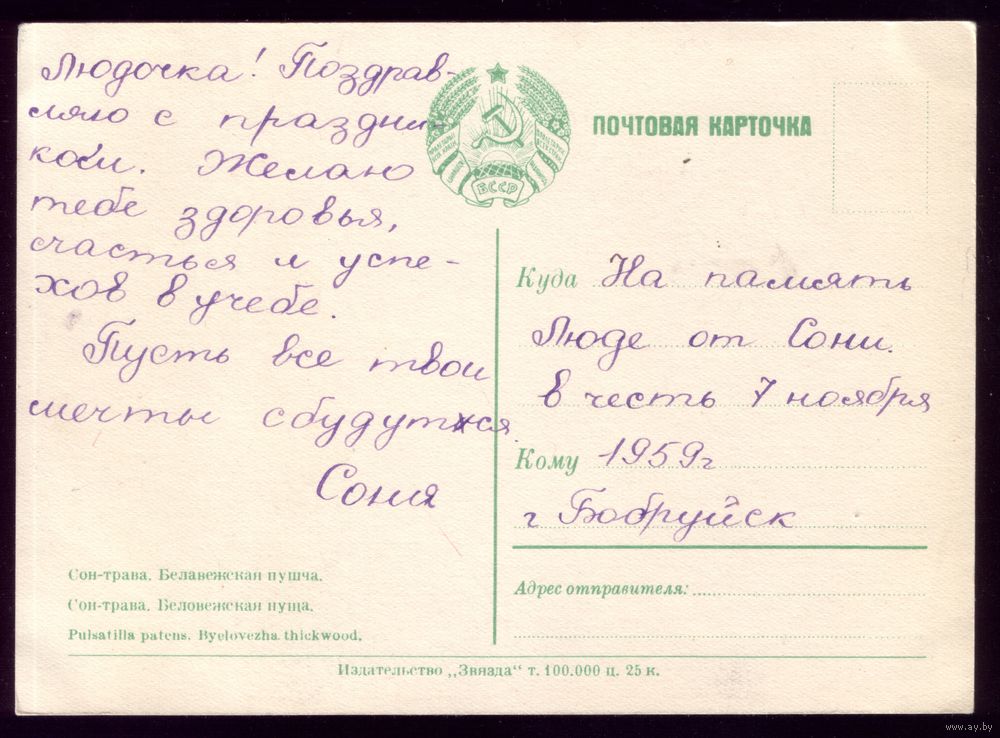 Людочка! Поздрав-
ляю с праздни-
ком. Желаю
тебе здоровья,
счастья и успе-
хов в учебе.
Пусть все твои
мечты сбудутся.
Соня
БССР
ПОЧТОВАЯ КАРТОЧКА
Куда На память
Люде от Сони.
в честь 7 ноября
Кому 1959г
г Бобруйск
Адрес отправителя:
Сон-трава. Белавежская пушча.
Сон-трава. Беловежская пуща.
Pulsatilla patens. Byelovezha thickwood.
Издательство „Звязда“ т. 100.000 ц. 25 к.
www.ay.by